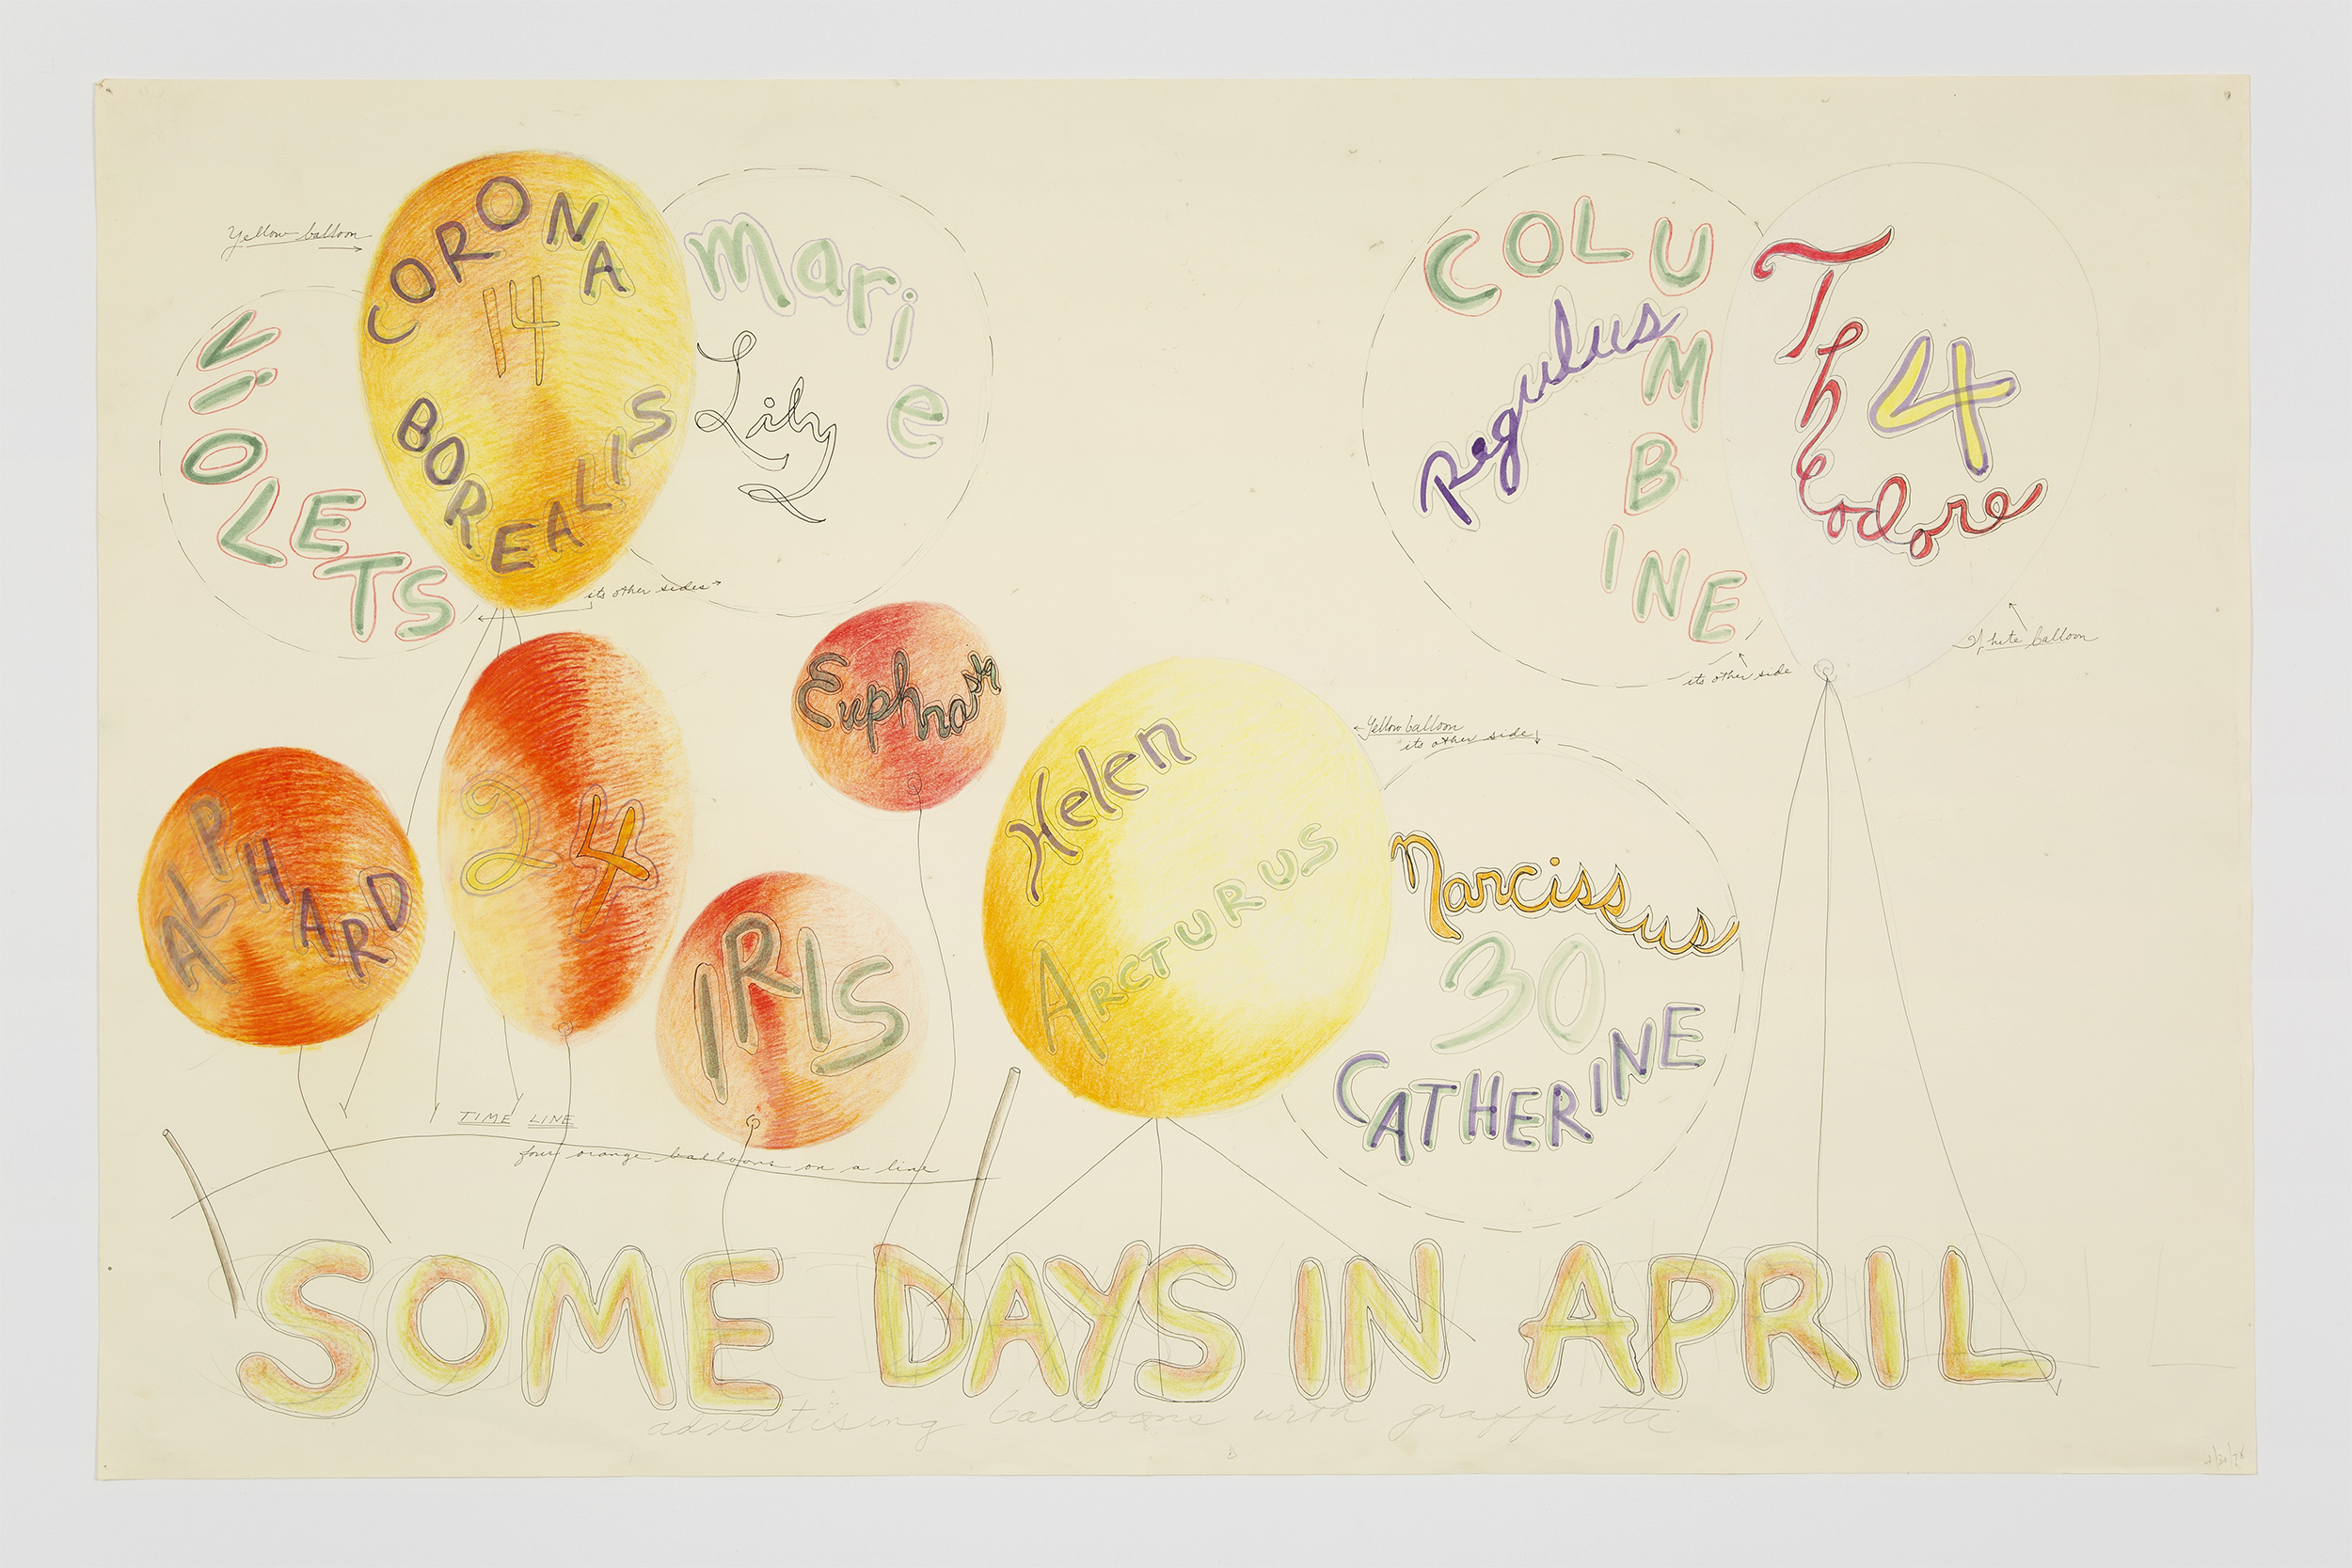 Yellow balloon
CORONA
14
BOREALIS
VIOLETS
Marie
Lily
its other sides
COLUMBINE
Regulus
Theodore
4
its other side
White balloon
ALPHARD
24
IRIS
Helen
ARCTURUS
Yellow balloon
its other side
Narcissus
30
CATHERINE
TIME LINE
four orange balloons on a line
SOME DAYS IN APRIL
advertising balloons with graffitti